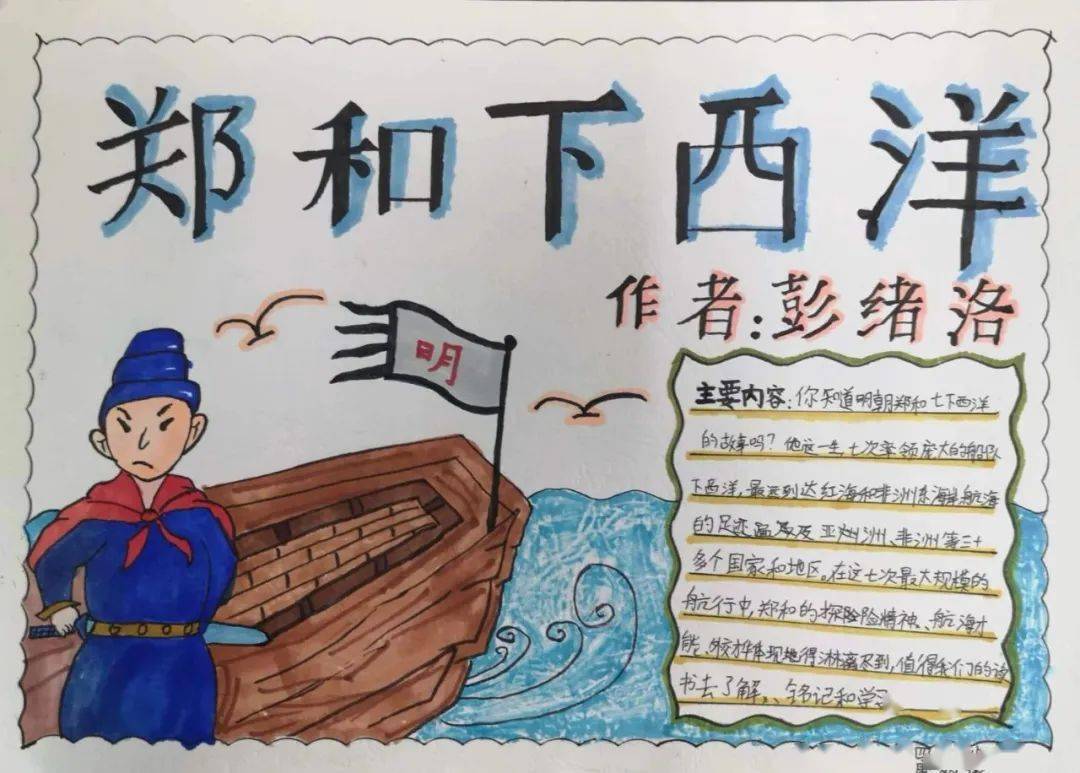 郑和下西洋
作者:彭绪洛
明
主要内容:你知道明朝郑和七下西洋
的故事吗?他这一生七次率领庞大的船队
下西洋,最远到达红海和非洲东海岸,航海
的足迹遍及亚洲、非洲等三十
多个国家和地区。在这七次最大规模的
航行中,郑和的探险精神、航海才
能、得淋漓尽到,值得我们的读
书去了解、铭记和学习